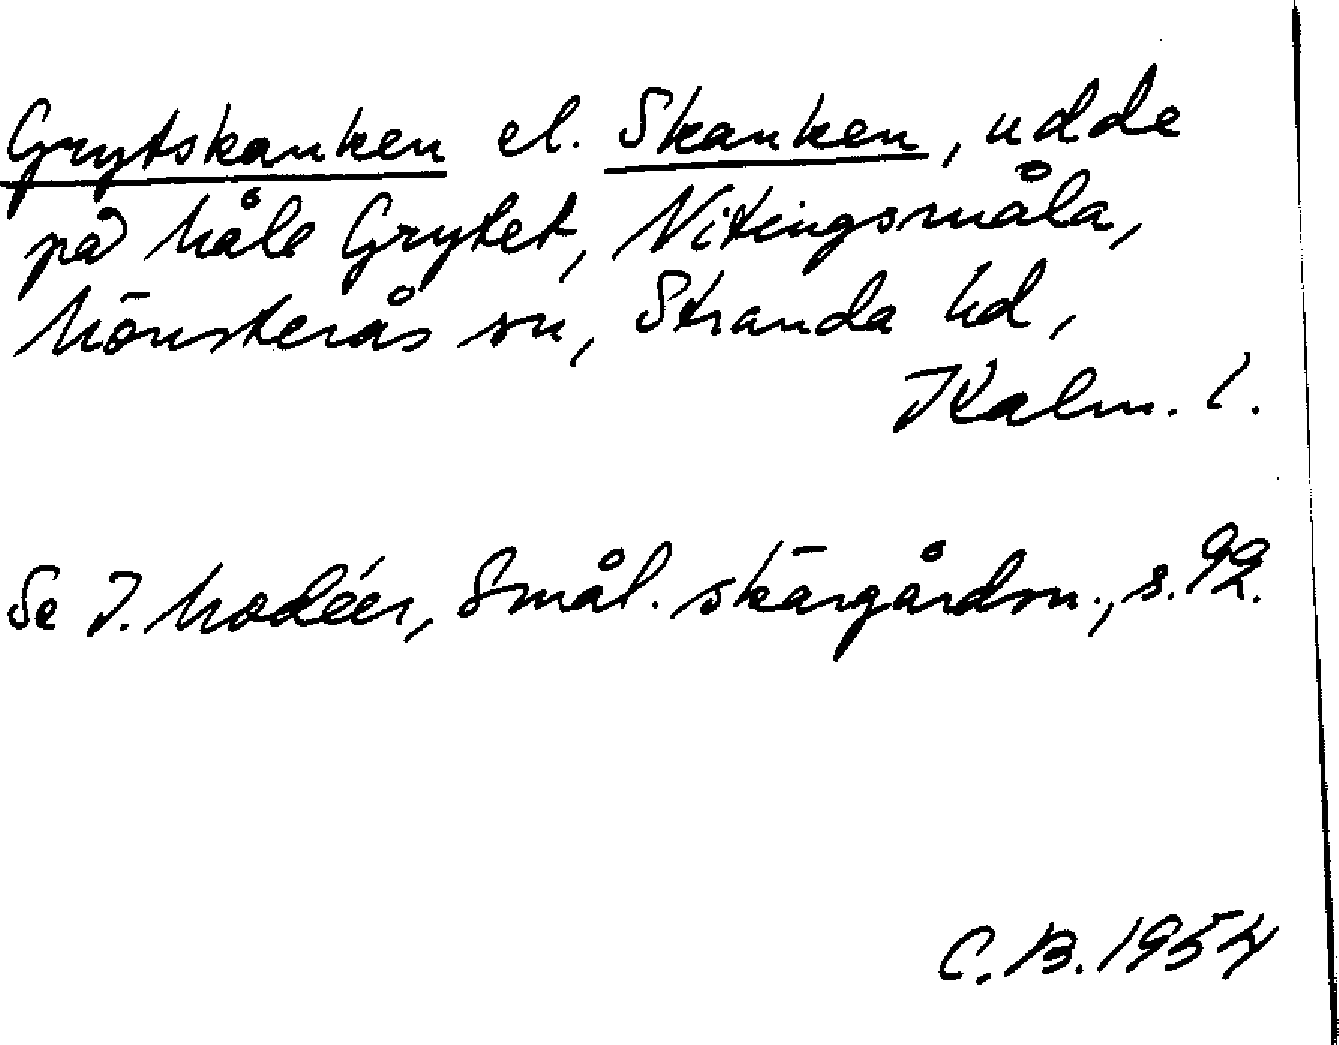 Grytskanken el. Skanken, udde
på håle Grytet, Nitingsmåla,
Mönsterås sn, Stranda hd,
Kalm. l.
Se I. Modéer, Smål. skärgårdsn., s. 92.
C. B. 1954